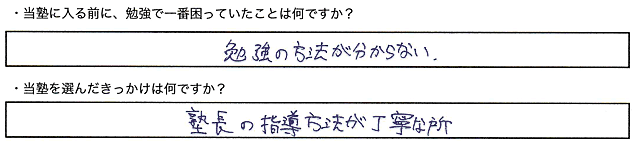 ・当塾に入る前に、勉強で一番困っていたことは何ですか？
勉強の方法が分からない.
・当塾を選んだきっかけは何ですか？
塾長の指導方法が丁寧な所